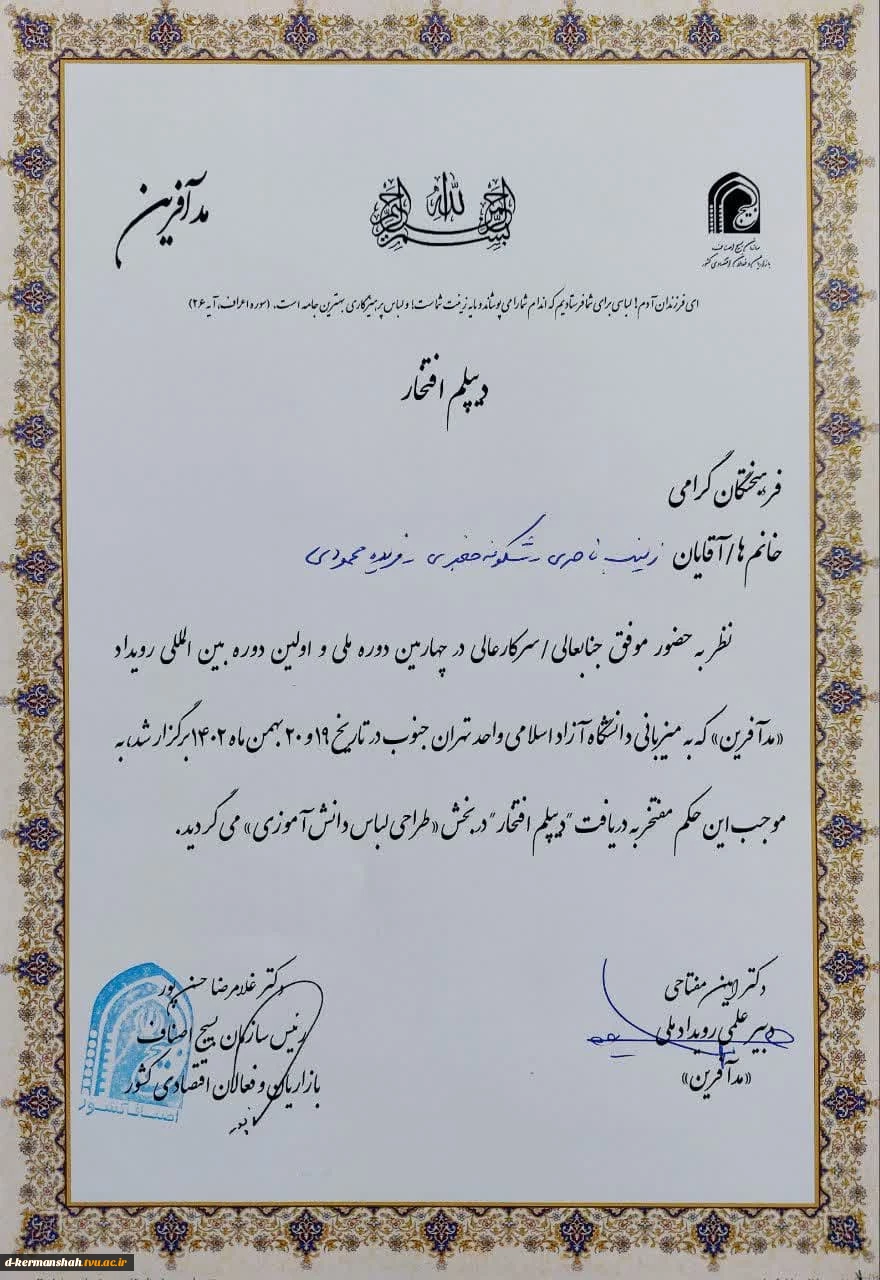 مدآفرین
بسم الله الرحمن الرحیم
بسیج
سازمان بسیج اصناف
بازاریان و فعالان اقتصادی کشور
ای فرزندان آدم! لباسی برای شما فرستادیم که اندام شما را می پوشاند و مایه زینت شماست؛ و لباس پرهیزگاری بهترین جامه است. (سوره اعراف، آیه ۲۶)
دیپلم افتخار
فرهیختگان گرامی
خانم ها/آقایان زینب ناصری , شکوفه جعفری , فریده محمودی
نظر به حضور موفق جنابعالی/سرکارعالی در چهارمین دوره ملی و اولین دوره بین المللی رویداد
«مدآفرین» که به میزبانی دانشگاه آزاد اسلامی واحد تهران جنوب در تاریخ ۱۹ و ۲۰ بهمن ماه ۱۴۰۲ برگزار شد، به
موجب این حکم مفتخر به دریافت "دیپلم افتخار" در بخش «طراحی لباس دانش آموزی» می گردید.
دکتر امین مفتاحی
دبیر علمی رویداد ملی
«مدآفرین»
دکتر غلامرضا حسن پور
رئیس سازمان بسیج اصناف
بازاریان و فعالان اقتصادی کشور
بسیج
اصناف کشور
d-kermanshah.tvu.ac.ir